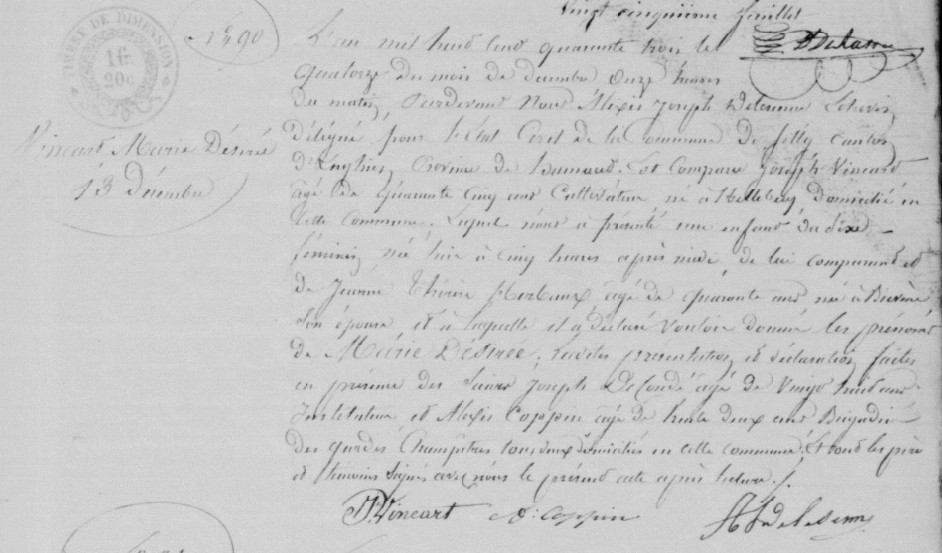 Vingt cinquième feuillet
TIMBRE DE DIMENSION
16
20c
1490
L'an mil huit cent quarante trois le
quatorze du mois de decembre onze heures
du matin, Pardevant Nous Alexis Joseph Echevin
délégué pour l'état Civil de la Commune de Silly canton
d'Enghien, Province de hainaut. Est Comparu Joseph Vincart
agé de Quarante Cinq ans Cultivateur, né à Hellebecq domicilié en
cette Commune. Lequel nous a présenté une enfant du sexe
féminin, née hier à cinq heures après midi, de lui comparant et
de Jeanne Thérèse agé de quarante ans né à Bievène
son épouse, et à laquelle il a déclaré vouloir donner les prénoms
de Marie Désirée; présentation, et déclaration, faites
en présence des Sieurs Joseph DeCondé agé de Vingt huit ans
Instituteur et Alexis Coppin agé de trente deux ans Brigadier
des gardes Champêtres tous deux domiciliés en cette commune, Et ont les père
et témoins signés avec nous le présent acte après lecture./.
Vincart Marie Désirée
13 Décembre
J. Vincart A: Coppin